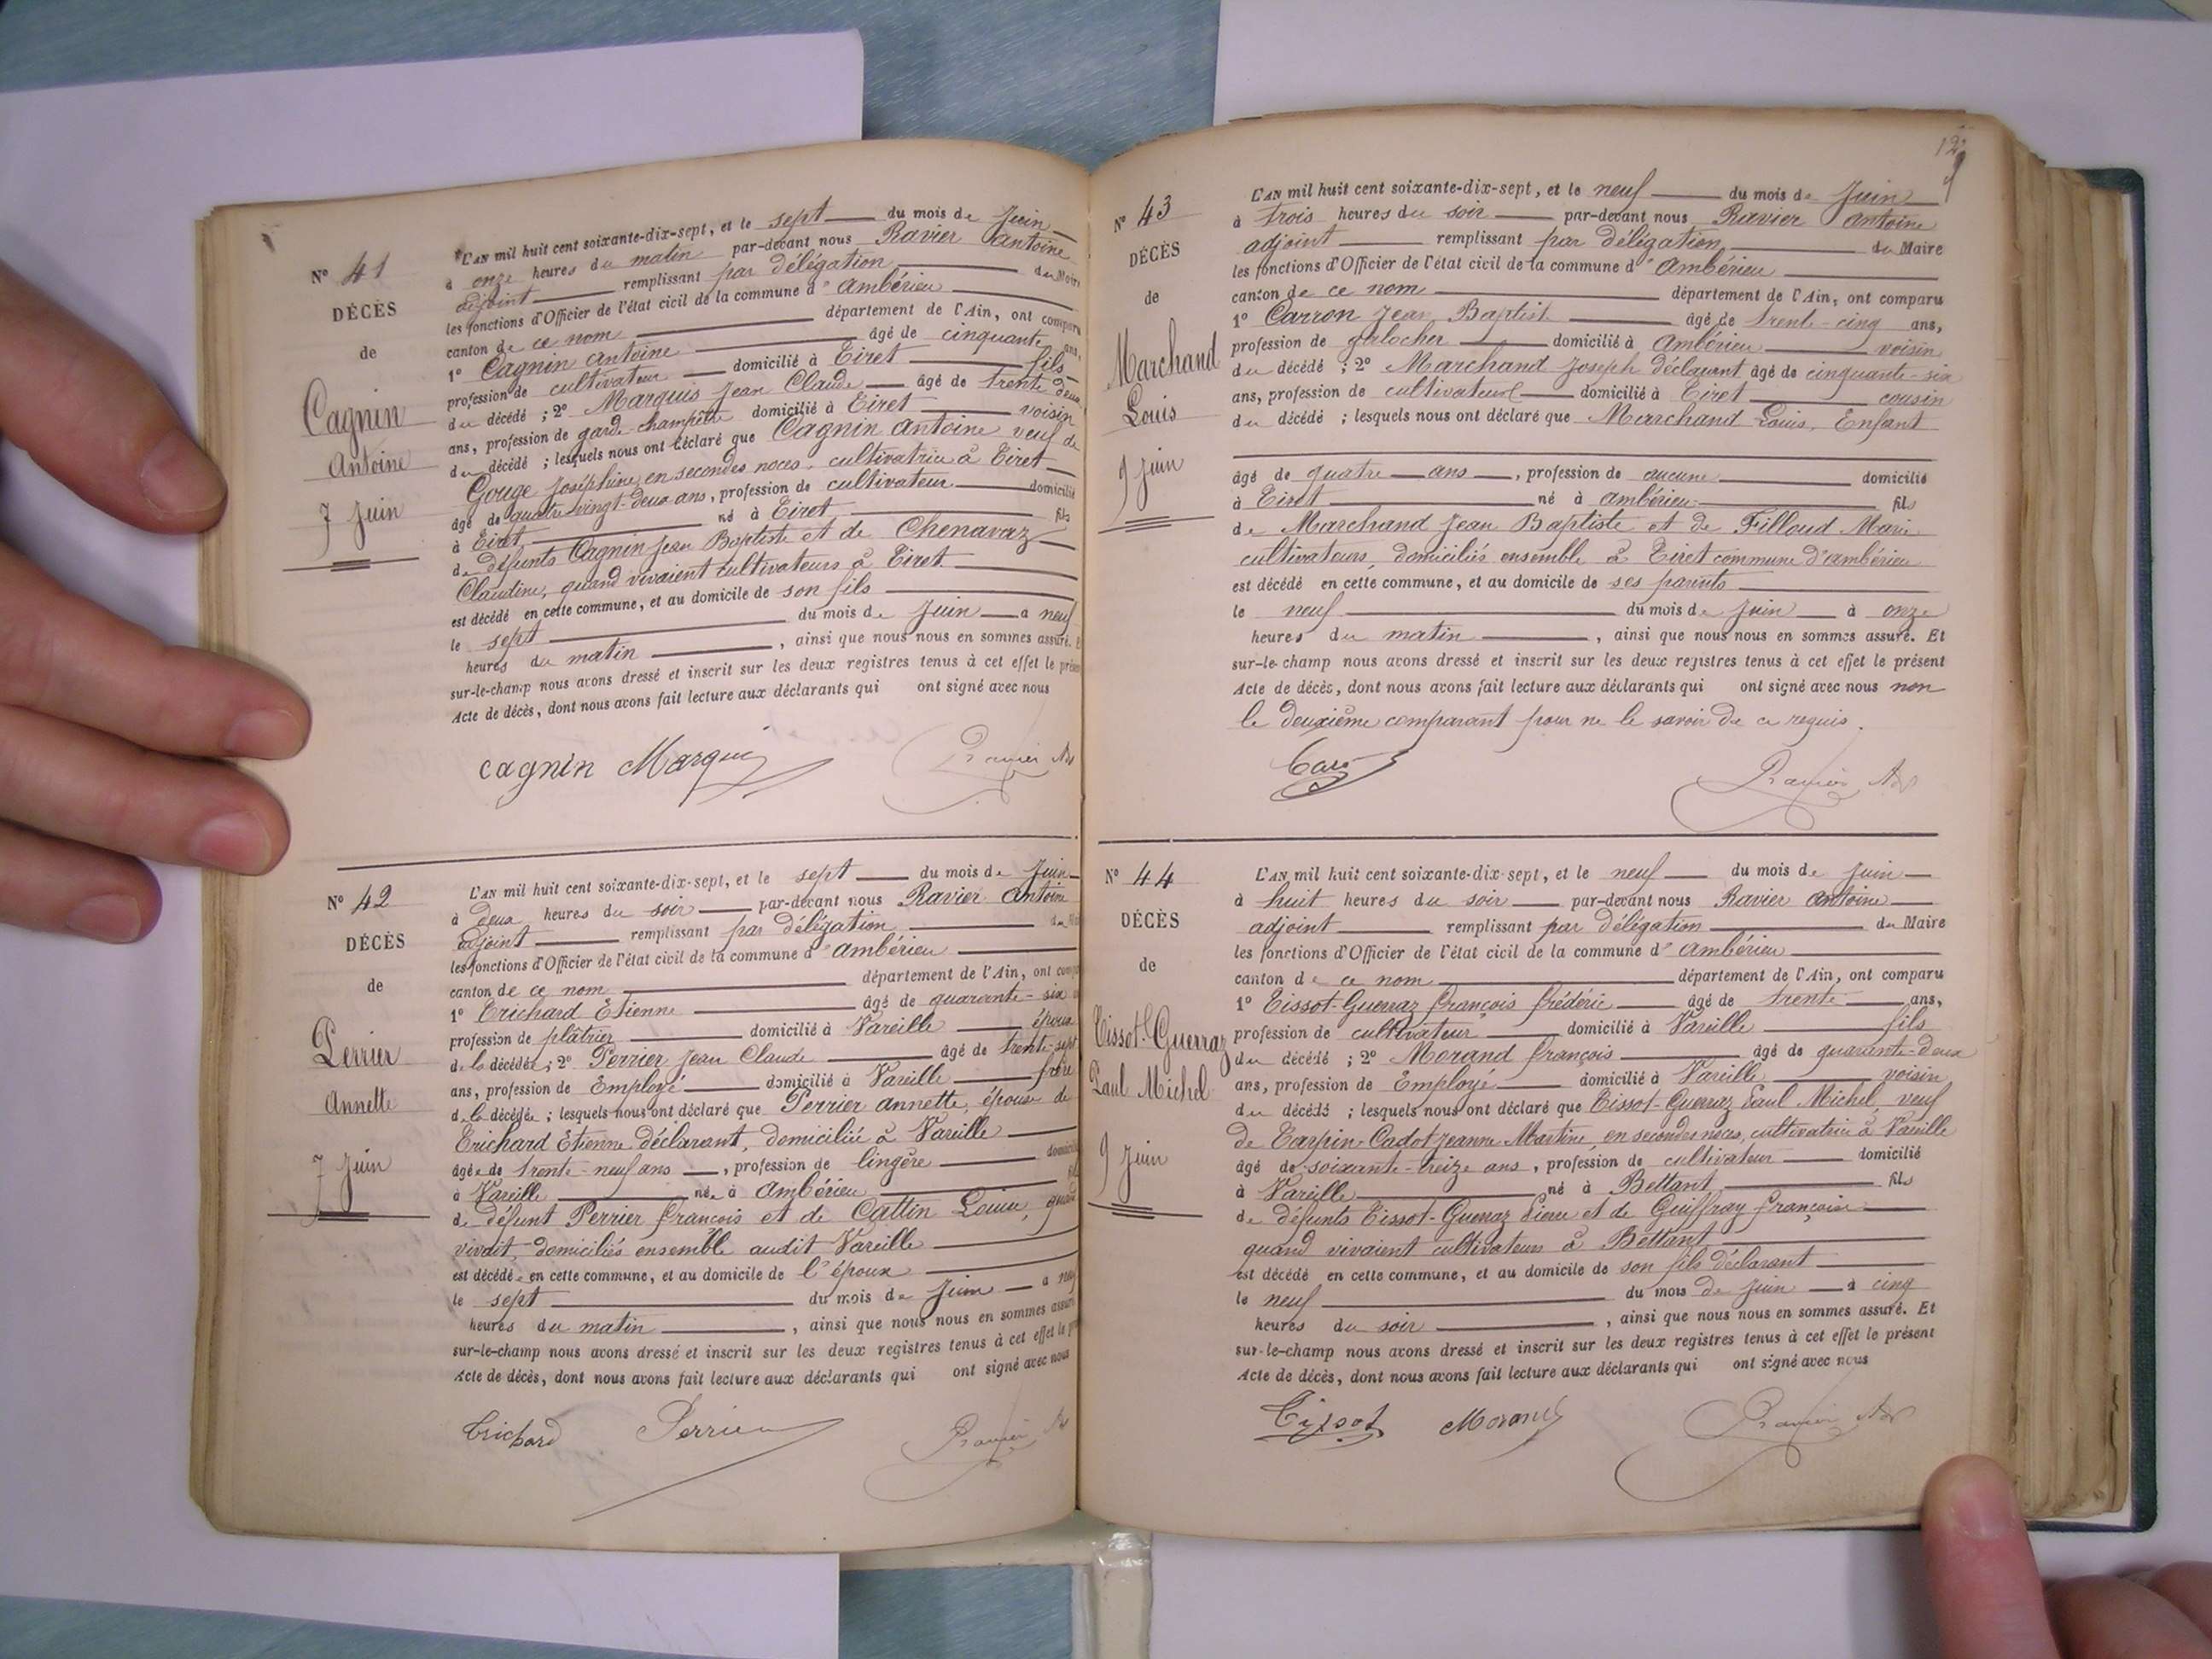 N° 41
DÉCÈS
de
Cagnin
Antoine
7 Juin
L'AN mil huit cent soixante-dix-sept, et le sept du mois de Juin
à onze heures du matin par-devant nous Ravier Antoine
adjoint remplissant par délégation du Maire
les fonctions d'Officier de l'état civil de la commune d'Ambérieu
canton de ce nom département de l'Ain, ont comparu
1° Cagnin Antoine âgé de cinquante ans,
profession de cultivateur domicilié à Tiret fils
du décédé ; 2° Marquis Jean Claude âgé de trente deux
ans, profession de garde champêtre domicilié à Tiret voisin
du décédé ; lesquels nous ont déclaré que Cagnin Antoine veuf de
Gouge Joséphine, en secondes noces, cultivatrice à Tiret
âgé de quatre vingt-deux ans, profession de cultivateur domicilié
à Tiret né à Tiret fils
de défunts Cagnin Jean Baptiste et de Chenavaz
Claudine, quand vivaient cultivateurs à Tiret
est décédé en cette commune, et au domicile de son fils
le sept du mois de Juin à neuf
heures du matin, ainsi que nous nous en sommes assuré. Et
sur-le-champ nous avons dressé et inscrit sur les deux registres tenus à cet effet le présent
Acte de décès, dont nous avons fait lecture aux déclarants qui ont signé avec nous
Cagnin Marquis Ravier Adj
N° 42
DÉCÈS
de
Perrier
Annette
7 Juin
L'AN mil huit cent soixante-dix-sept, et le sept du mois de Juin
à deux heures du soir par-devant nous Ravier Antoine
adjoint remplissant par délégation du
les fonctions d'Officier de l'état civil de la commune d'Ambérieu
canton de ce nom département de l'Ain, ont comparu
1° Trichard Etienne âgé de quarante-six
profession de plâtrier domicilié à Vareille époux
de la décédée ; 2° Perrier Jean Claude âgé de trente-sept
ans, profession de Employé domicilié à Vareille frère
de la décédée ; lesquels nous ont déclaré que Perrier Annette, épouse de
Trichard Etienne déclarant, domiciliée à Vareille
âgée de trente-neuf ans, profession de lingère domicilié
à Vareille née à Ambérieu fil
de défunt Perrier François et de Cattin Louise, quand
vivait, domiciliés ensemble audit Vareille
est décédée en cette commune, et au domicile de l'époux
le sept du mois de Juin à neuf
heures du matin, ainsi que nous nous en sommes assuré
sur-le-champ nous avons dressé et inscrit sur les deux registres tenus à cet effet le
Acte de décès, dont nous avons fait lecture aux déclarants qui ont signé avec nous
Trichard Perrier Ravier
12
N° 43
DÉCÈS
de
Marchand
Louis
9 Juin
L'AN mil huit cent soixante-dix-sept, et le neuf du mois de Juin
à trois heures du soir par-devant nous Ravier Antoine
adjoint remplissant par délégation du Maire
les fonctions d'Officier de l'état civil de la commune d'Ambérieu
canton de ce nom département de l'Ain, ont comparu
1° Carron Jean Baptiste âgé de trente-cinq ans,
profession de domicilié à Ambérieu voisin
du décédé ; 2° Marchand Joseph déclarant âgé de cinquante-six
ans, profession de cultivateur domicilié à Tiret cousin
du décédé ; lesquels nous ont déclaré que Marchand Louis, Enfant
âgé de quatre ans, profession de aucune domicilié
à Tiret né à Ambérieu fils
de Marchand Jean Baptiste et de Filloud Marie
cultivateurs, domiciliés ensemble à Tiret commune d'Ambérieu
est décédé en cette commune, et au domicile de ses parents
le neuf du mois de Juin à onze
heures du matin, ainsi que nous nous en sommes assuré. Et
sur-le-champ nous avons dressé et inscrit sur les deux registres tenus à cet effet le présent
Acte de décès, dont nous avons fait lecture aux déclarants qui ont signé avec nous non
le deuxième comparant pour ne le savoir de ce requis.
Ravier Adj
N° 44
DÉCÈS
de
Tissot-Guerraz
Paul Michel
9 Juin
L'AN mil huit cent soixante-dix-sept, et le neuf du mois de Juin
à huit heures du soir par-devant nous Ravier Antoine
adjoint remplissant par délégation du Maire
les fonctions d'Officier de l'état civil de la commune d'Ambérieu
canton de ce nom département de l'Ain, ont comparu
1° Tissot-Guerraz François Frédéric âgé de trente ans,
profession de cultivateur domicilié à Vareille fils
du décédé ; 2° Morand François âgé de quarante-deux
ans, profession de Employé domicilié à Vareille voisin
du décédé ; lesquels nous ont déclaré que Tissot-Guerraz Paul Michel, veuf
de Carpin-Cadot Jeanne Martine, en secondes noces, cultivatrice à Vareille
âgé de soixante-treize ans, profession de cultivateur domicilié
à Vareille né à Bettant fils
de défunts Tissot-Guerraz Pierre et de Guiffray Françoise
quand vivaient cultivateurs à Bettant
est décédé en cette commune, et au domicile de son fils déclarant
le neuf du mois de Juin à cinq
heures du soir, ainsi que nous nous en sommes assuré. Et
sur-le-champ nous avons dressé et inscrit sur les deux registres tenus à cet effet le présent
Acte de décès, dont nous avons fait lecture aux déclarants qui ont signé avec nous
Tissot Morand Ravier Adj